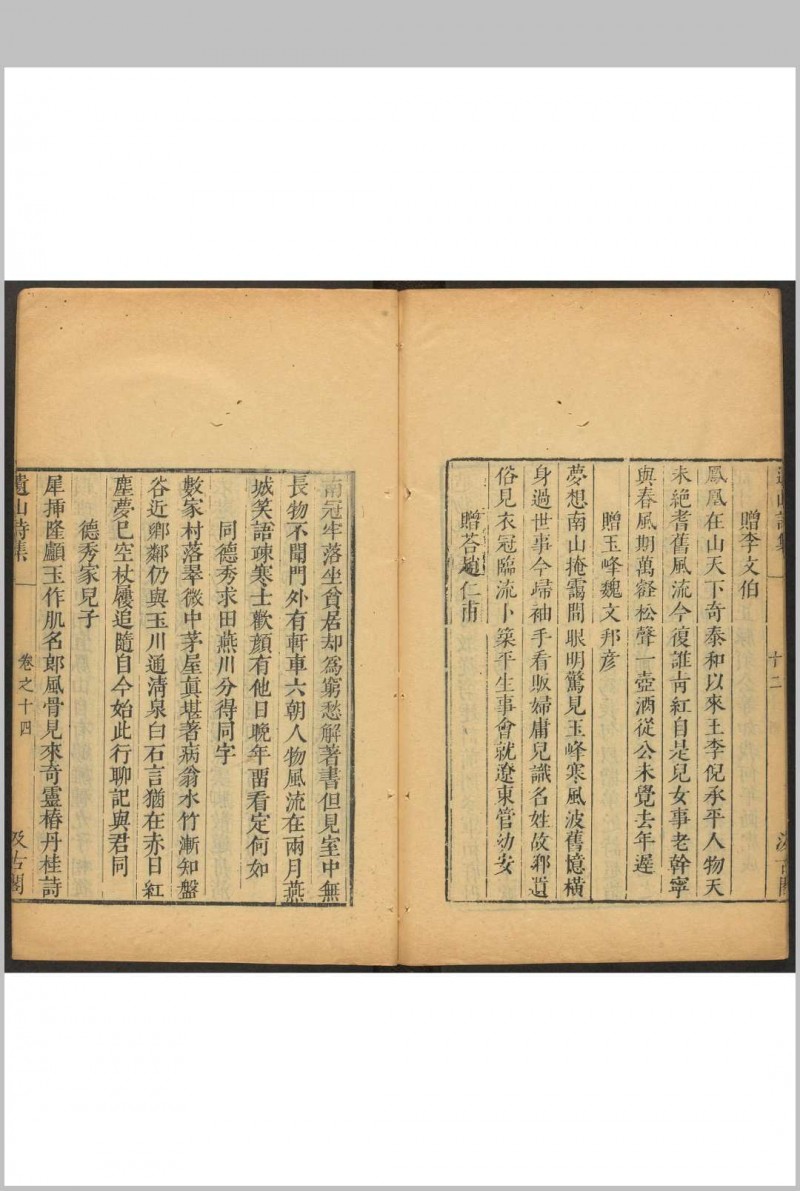 遺山詩集
十二
汲古閣
贈李文伯
鳳凰在山天下奇泰和以來王李倪承平人物天
未絕耆舊風流今復誰青紅自是兒女事老幹寧
與春風期萬壑松聲一壺酒從公未覺去年遲
贈玉峰魏文邦彦
夢想南山掩靄間眼明驚見玉峰寒風波舊憶橫
身過世事今歸袖手看販婦庸兒識名姓故鄉遺
俗見衣冠臨流卜築平生事會就遼東管幼安
贈荅趙仁甫
南冠牢落坐貧居却爲窮愁解著書但見室中無
長物不聞門外有軒車六朝人物風流在兩月燕
城笑語疎寒士歡顔有他日晚年畱看定何如
同德秀求田燕川分得同字
數家村落翠微中茅屋眞堪著病翁水竹漸知盤
谷近鄉鄰仍與玉川通淸泉白石言猶在赤日紅
塵夢已空杖屨追隨自今始此行聊記與君同
德秀家兒子
犀揷隆顱玉作肌名郎風骨見來奇靈椿丹桂詩
遺山詩集
卷之十四
汲古閣